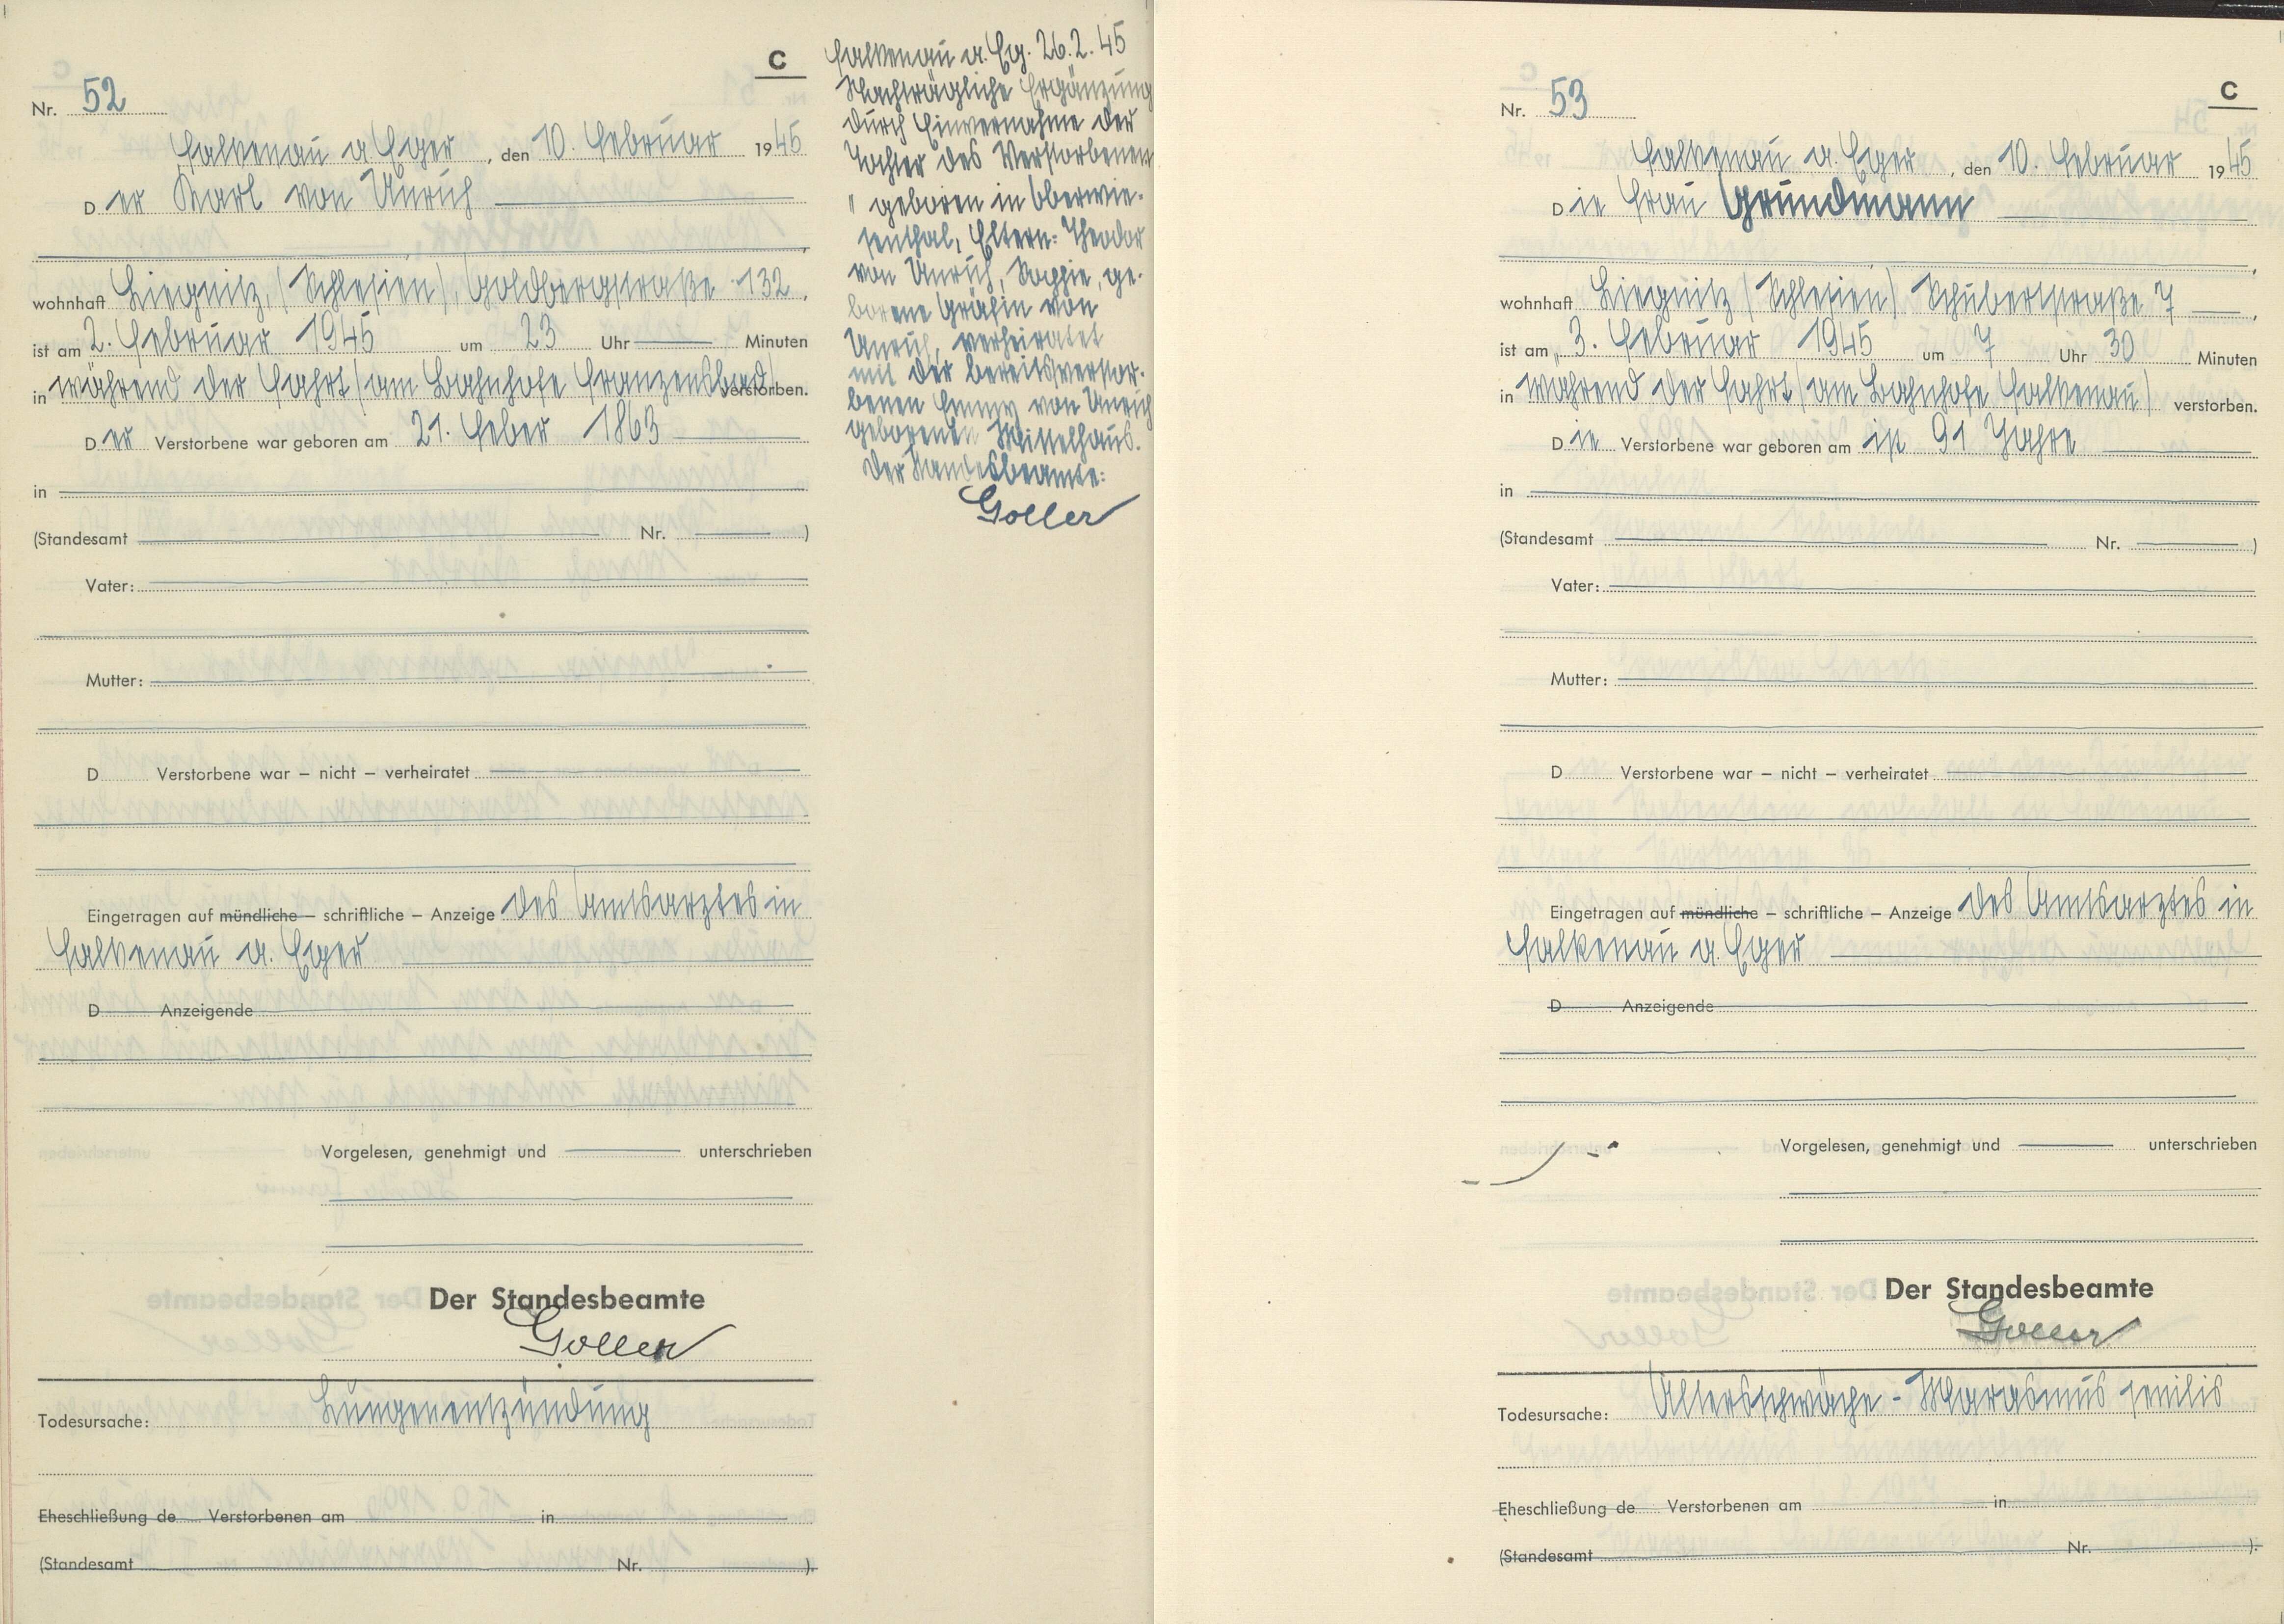 C
Nr. 52
Falkenau a Eger, den 10. Februar 1945
Der Karl von Unruh
wohnhaft Liegnitz, (Schlesien), Goldbergstraße 132,
ist am 2. Februar 1945 um 23 Uhr Minuten
in während der Fahrt (am Bahnhofe Franzensbad) verstorben.
Der Verstorbene war geboren am 21. Feber 1863
in
(Standesamt Nr. )
Vater:
Mutter:
D Verstorbene war – nicht – verheiratet
Eingetragen auf mündliche – schriftliche – Anzeige des Amtsarztes in
Falkenau a. Eger
D Anzeigende
Vorgelesen, genehmigt und unterschrieben
Der Standesbeamte
Goller
Todesursache: Lungenentzündung
Eheschließung de Verstorbenen am in
(Standesamt Nr. ).
Falkenau a. Eg. 26.2.45
Nachträgliche Ergänzung
durch Einvernahme der
Tochter des Verstorbenen
" geboren in Oberwie-
senthal, Eltern: Theodor
von Unruh, Sophie, ge-
borene Gräfin von
Unruh, verheiratet
mit der bereits verstor-
benen Emmy von Unruh
geborenen Mittelhaus.
Der Standesbeamte:
Goller
C
Nr. 53
Falkenau a. Eger, den 10. Februar 1945
Die Frau Grundmann
wohnhaft Liegnitz (Schlesien) Schubertstraße 7,
ist am 3. Februar 1945 um 7 Uhr 30 Minuten
in während der Fahrt (am Bahnhofe Falkenau) verstorben.
Die Verstorbene war geboren am ist 91 Jahre
in
(Standesamt Nr. )
Vater:
Mutter:
D Verstorbene war – nicht – verheiratet
Eingetragen auf mündliche – schriftliche – Anzeige des Amtsarztes in
Falkenau a. Eger
D Anzeigende
Vorgelesen, genehmigt und unterschrieben
Der Standesbeamte
Goller
Todesursache: Altersschwäche - Marasmus senilis
Eheschließung de Verstorbenen am in
(Standesamt Nr. ).